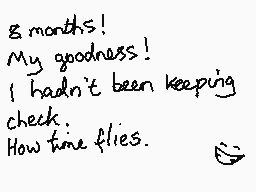 8 months!
My goodness!
I hadn't been keeping
check.
How time flies.